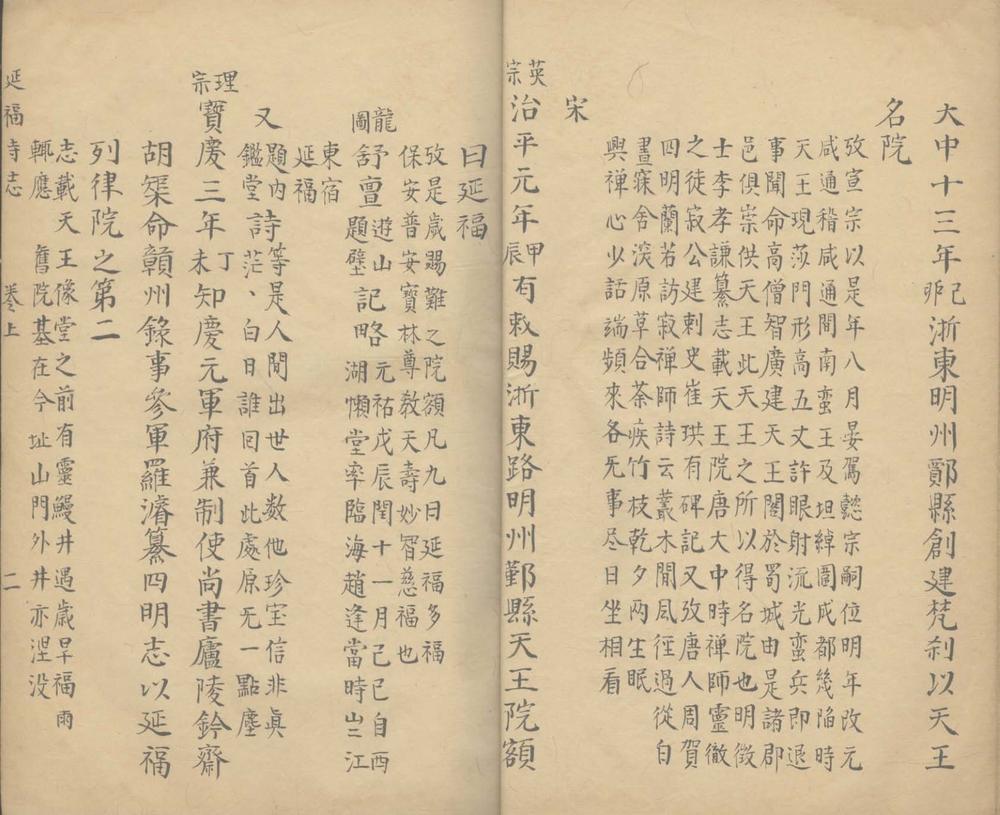 大中十三年己卯浙東明州鄮縣創建梵刹以天王
名院
攷宣宗以是年八月晏駕懿宗嗣位明年改元
咸通稽咸通間南蛮王及坦綽圍成都幾陷時
天王現莎門形高五丈許眼射流光蛮兵即退
事聞命高僧智廣建天王閣於蜀城由是諸郡
邑俱崇供天王此天王之所以得名院也明徵
士李孝謙纂志載天王院唐大中時禅師靈徹
之徒寂公建刺史崔珙有碑記又攷唐人周賀
四明蘭若訪寂禅師詩云叢木閒風徑過從白
晝寐舍淡原草合茶疾竹枝乾夕雨生眠
興禅心少話端頻來各旡事尽日坐相看
宋
英宗
治平元年甲辰有敕賜浙東路明州鄞縣天王院額
曰延福
攷是歲賜難之院額凡九曰延福多福
保安普安寶林尊教天壽妙智慈福也
龍圖
舒亶遊山記略元祐戊辰閏十一月己巳自西
題壁湖懶堂率臨海趙逢當時山三江
東宿
延福
又
題内詩等是人間出世人数他珍宝信非眞
鑑堂茫、白日誰回首此處原旡一點塵
理宗
寶慶三年丁未知慶元軍府兼制使尚書廬陵鈐齋
胡榘命贛州錄事參軍羅濬纂四明志以延福
列律院之第二
志載天王像堂之前有靈鰻井遇歳旱福雨
輒應　舊院基在今址山門外井亦湮没
延福寺志　卷上　二